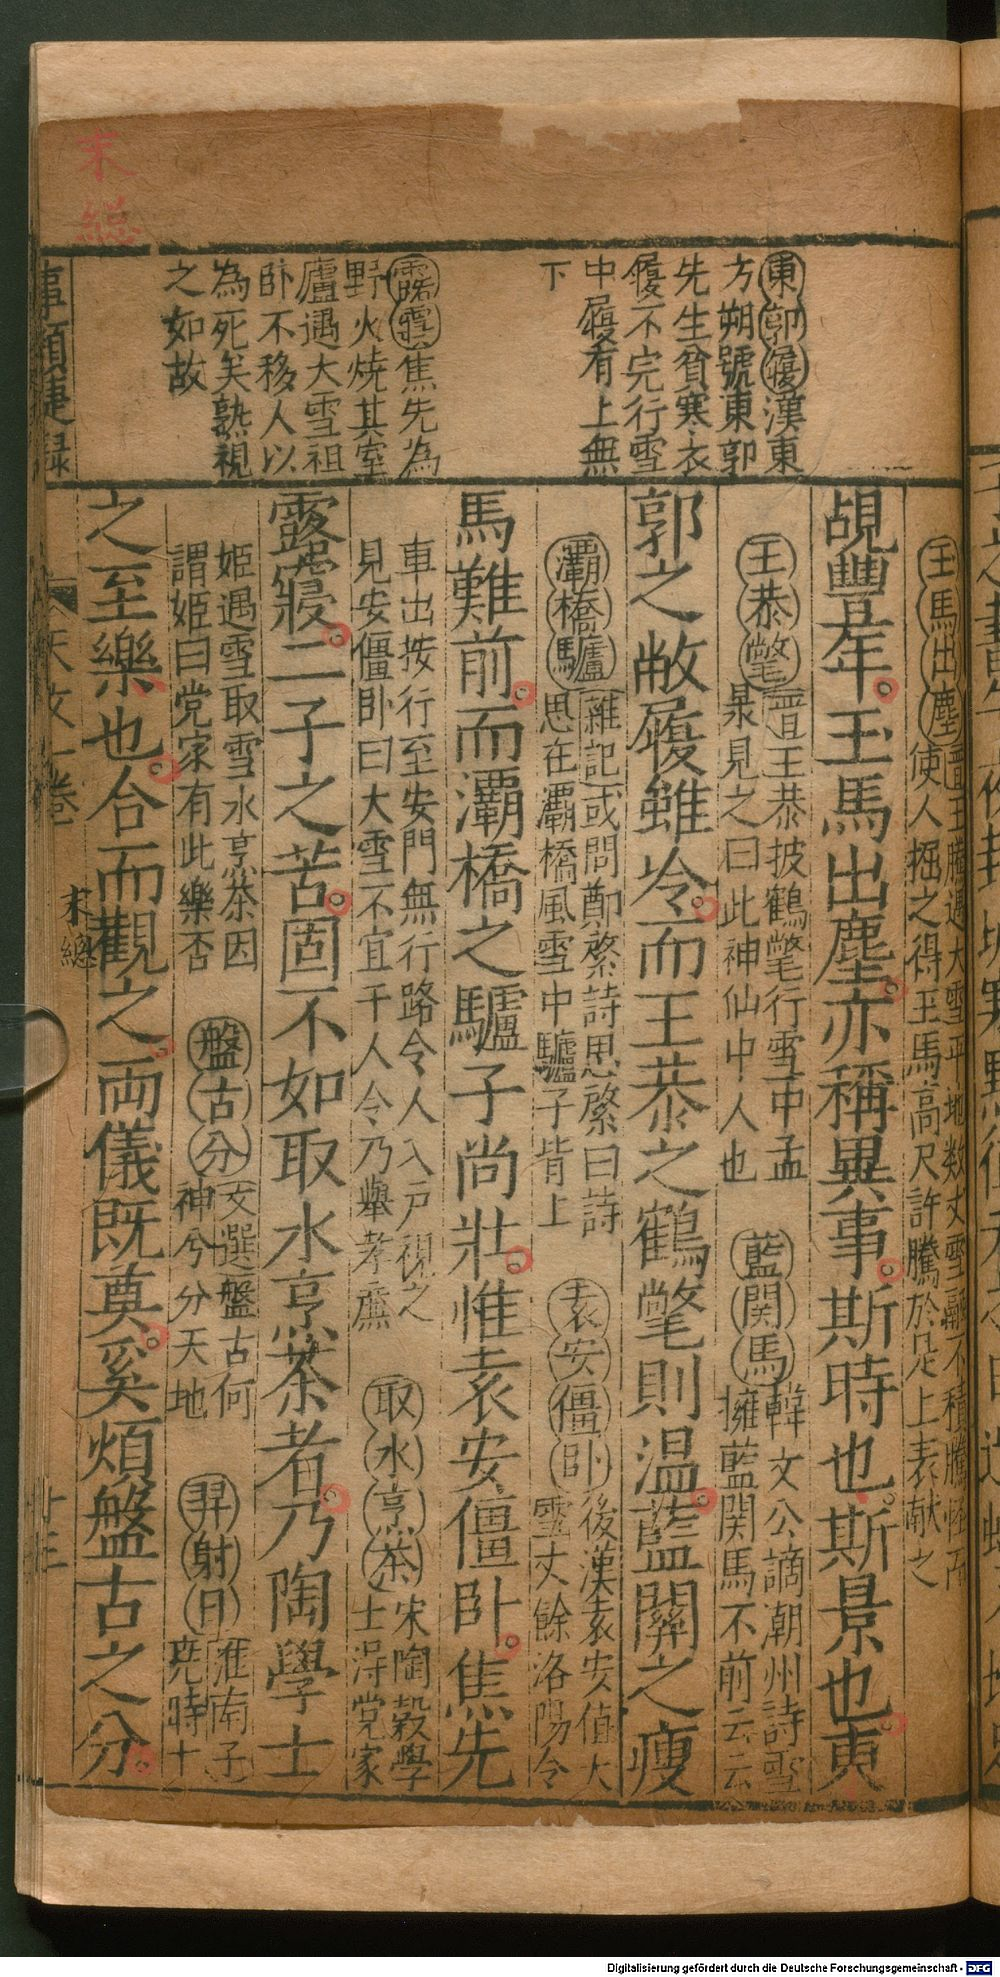 末總
東郭履漢東
方朔號東郭
先生貧寒衣
履不完行雪
中履有上無
下
露寢焦先為
野火燒其室
廬遇大雪祖
卧不移人以
為死矣熟視
之如故
事類捷録
玉馬出塵晋王騰遇大雪平地数丈雪融不積騰怪而
使人掘之得玉馬高尺許騰於是上表献之
覘豐年玉馬出塵亦稱異事斯時也斯景也東
王恭氅晋王恭披鶴氅行雪中孟
㫤見之曰此神仙中人也
藍関馬韓文公謫潮州詩雪
擁藍関馬不前云云
郭之敝履雖冷而王恭之鶴氅則温藍關之瘦
灞橋驢雜記或問鄭綮詩思綮曰詩
思在灞橋風雪中驢子背上
袁安僵卧後漢袁安值大
雪丈餘洛陽令
馬難前而灞橋之驢子尚壯惟袁安僵卧焦先
車出按行至安門無行路令人入戸視之
見安僵卧曰大雪不宜干人令乃舉孝廉
取水烹茶宋陶穀學
士淂党家
露寢二子之苦固不如取水烹茶者乃陶學士
姬遇雪取雪水烹茶因
謂姬曰党家有此樂否
盤古分文選盤古何
神兮分天地
羿射日淮南子
堯時十
之至樂也合而觀之両儀既奠奚煩盤古之分
天文一卷
末總
十三
Digitalisierung gefördert durch die Deutsche Forschungsgemeinschaft - DFG